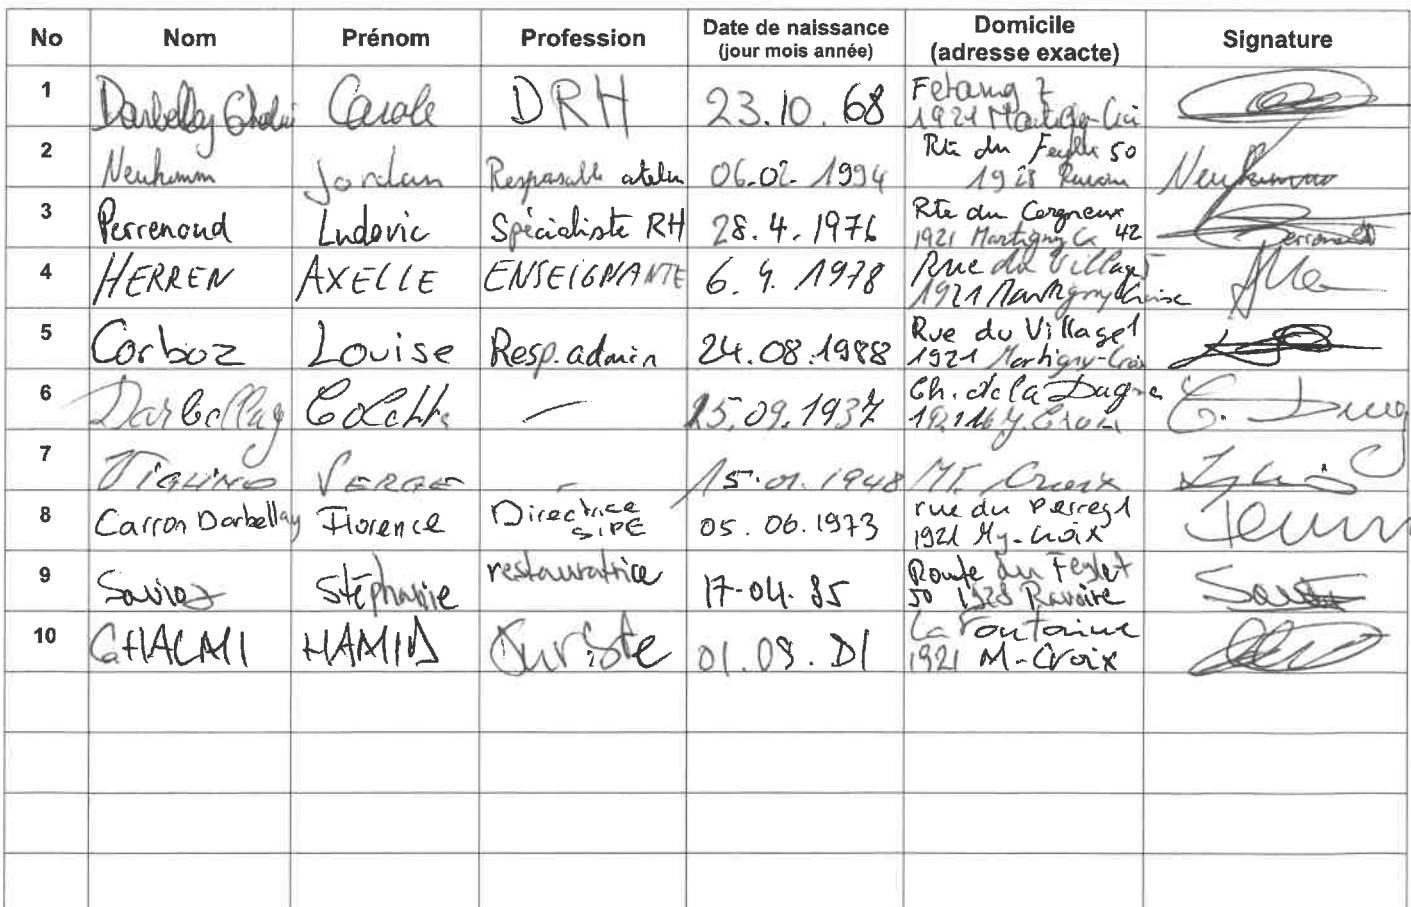 No Nom Prénom Profession Date de naissance (jour mois année) Domicile (adresse exacte) Signature
1 Darbellay Carole DRH 23.10.68
1921 Martigny-Croix
2 Neuhimm Jordan Responsable atelier 06.02.1994 Rte du Feylet 50
1928 Ravoire
3 Perrenoud Ludovic Spécialiste RH 28.4.1976 Rte du Cergneux 42
1921 Martigny Cx Perrenoud
4 HERREN AXELLE ENSEIGNANTE 6.9.1978 Rue du Village
1921 Martigny Croix
5 Corboz Louise Resp. admin 24.08.1988 Rue du Village 1
1921 Martigny-Croix
6 Darbellay Colette — 25.09.1937 Ch. de la
1921 My. Croix
7 VIGLINO SERGE - 15.01.1948 MT. Croix
8 Carron Darbellay Florence Directrice SIPE 05.06.1973 rue du Perrey 1
1921 My-Croix
9 Savioz Stéphanie restauratrice 17-04.85 Route du Feylet
50 1928 Ravoire
10 GHALMI HAMID Juriste La Fontaine
1921 M-Croix